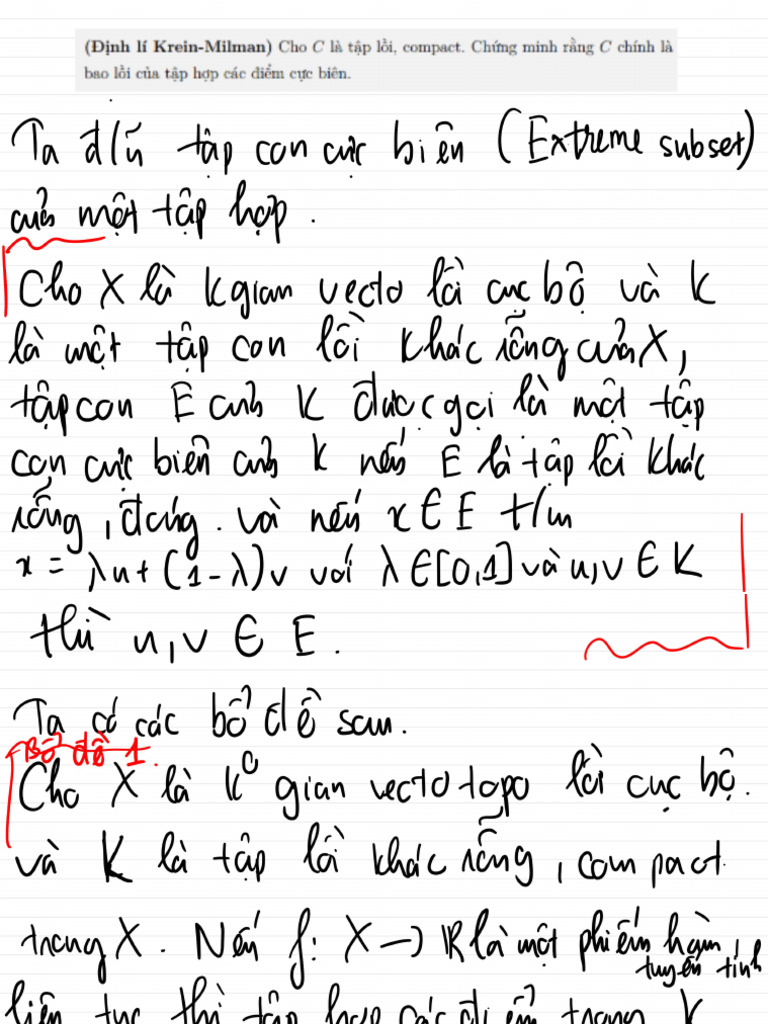 (Định lí Krein-Milman) Cho C là tập lồi, compact. Chứng minh rằng C chính là
bao lồi của tập hợp các điểm cực biên.
Ta đ/n tập con cực biên (Extreme subset)
của một tập hợp.
Cho X là k gian vecto lồi cục bộ và K
là một tập con lồi khác rỗng của X,
tập con E của K được gọi là một tập
con cực biên của K nếu E là tập lồi khác
rỗng, đóng. và nếu x ∈ E t/m
x = λu + (1-λ)v với λ ∈ [0,1] và u,v ∈ K
thì u,v ∈ E.
Ta có các bổ đề sau.
Bổ đề 1.
Cho X là k⁰ gian vecto topo lồi cục bộ.
và K là tập lồi khác rỗng, compact
trong X. Nếu f: X → ℝ là một phiếm hàm,
tuyến tính
liên tục thì tập hợp các điểm trong K